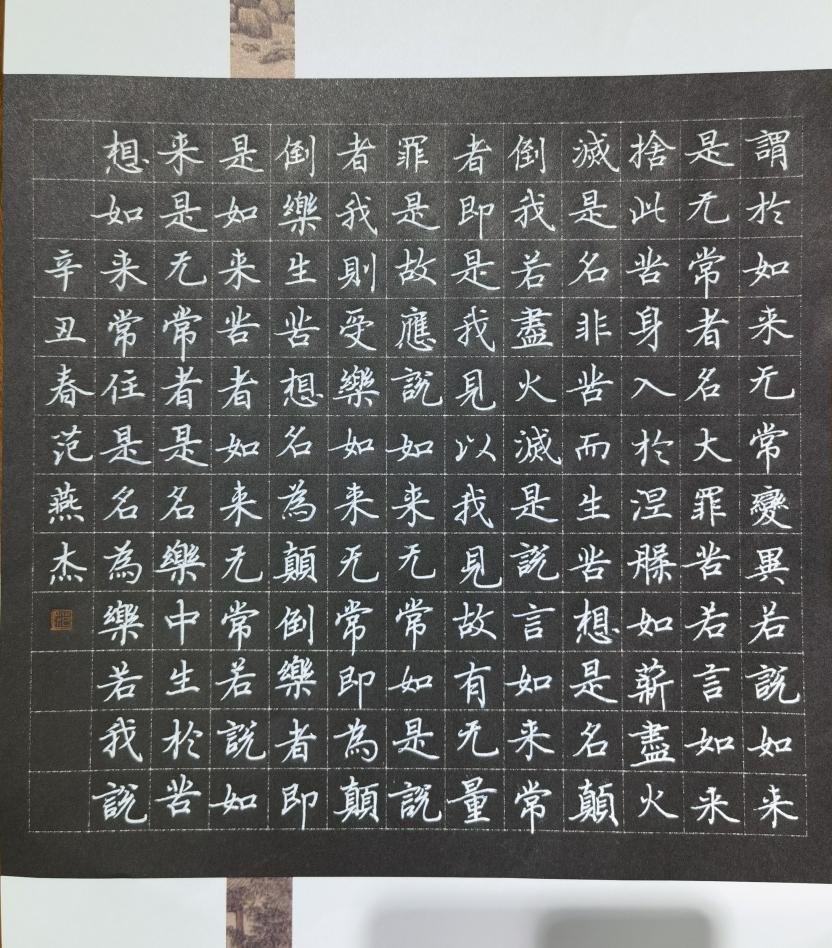 謂於如来无常變異若說如来
是无常者名大罪苦若言如来
捨此苦身入於涅槃如薪盡火
滅是名非苦而生苦想是名顛
倒我若盡火滅是說言如来常
者即是我見以我見故有无量
罪是故應說如来无常如是說
者我則受樂如来无常即為顛
倒樂生苦想名為顛倒樂者即
是如来苦者如来无常若說如
来是无常者是名樂中生於苦
想如来常住是名為樂若我說
辛丑春范燕杰